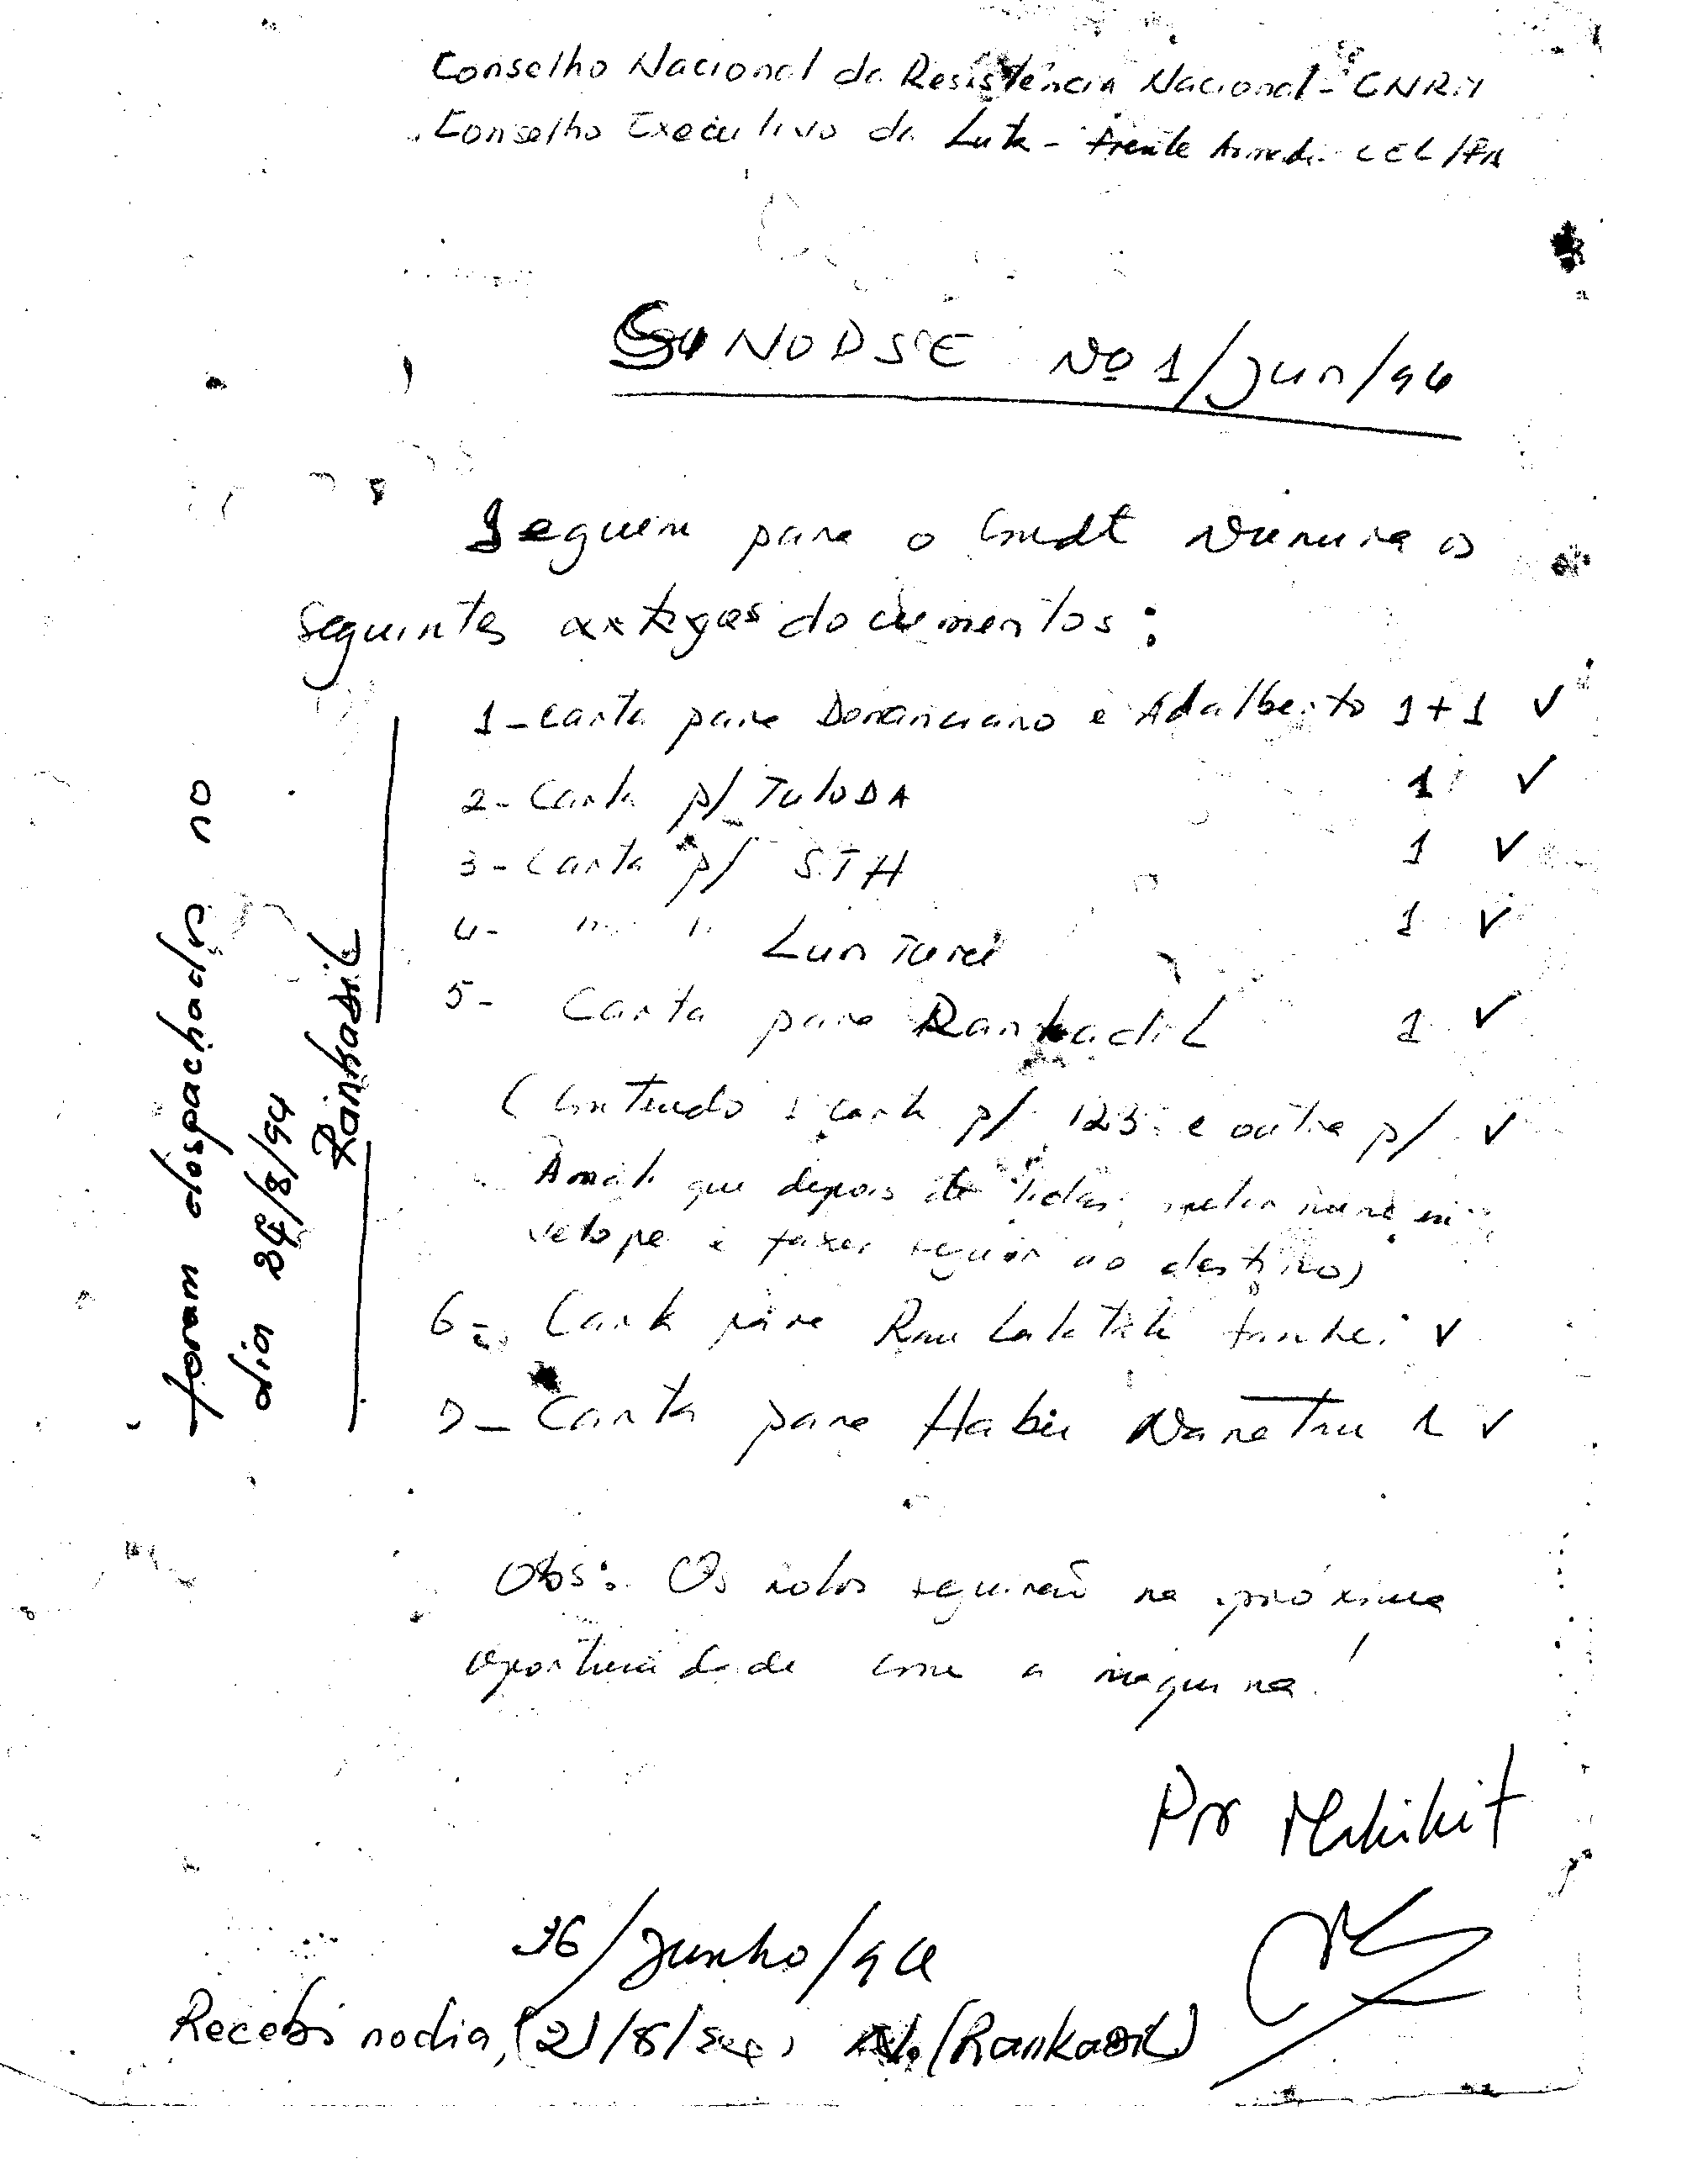 Conselho Nacional da Resistência Nacional - CNRM
Conselho Executivo da Luta - Frente Armada CEL/FA
SINODSE Nº 1/Jun/94
Seguem para o Cmdt Nunura os
seguintes documentos:
1 - Carta para Domanciano e Adalberto 1+1 ✓
2 - Carta p/ TuloDA 1 ✓
3 - Carta p/ STH 1 ✓
4 - " " Lun Turei 1 ✓
5 - Carta para Rankadil 1 ✓
(Contendo 1 carta p/ 123 e outra p/ ✓
que depois de lidas, meter num en-
velope e fazer seguir ao destino)
6 - Carta para Rau Lakateki ✓
7 - Carta para Habu Naretru 1 ✓
Obs: Os rolos seguirão na próxima
oportunidade com a máquina!
Por
26/Junho/94
Recebi no dia, 21/8/ (Rankadil)
foram despachados no
dia /8/94
Rankadil